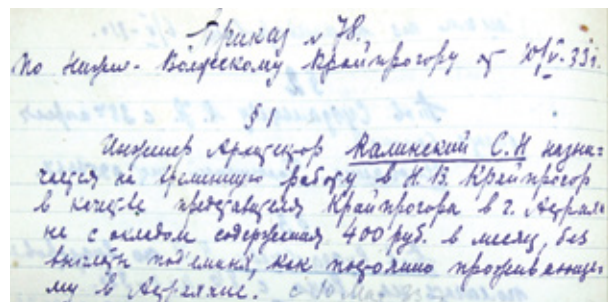 Приказ № 78.
По Нижн.-Волжскому Крайпрогору от 10/V-33г.
§ 1
Инженер Архитектор Калинский С.Н назна-
чается на временную работу в Н.В. Крайпрогор
в качестве представителя Крайпрогора в г. Астраха-
не с окладом содержания 400 руб. в месяц, без
выплаты подъемных, как постоянно проживающе-
му в Астрахане. с 10 мая 33